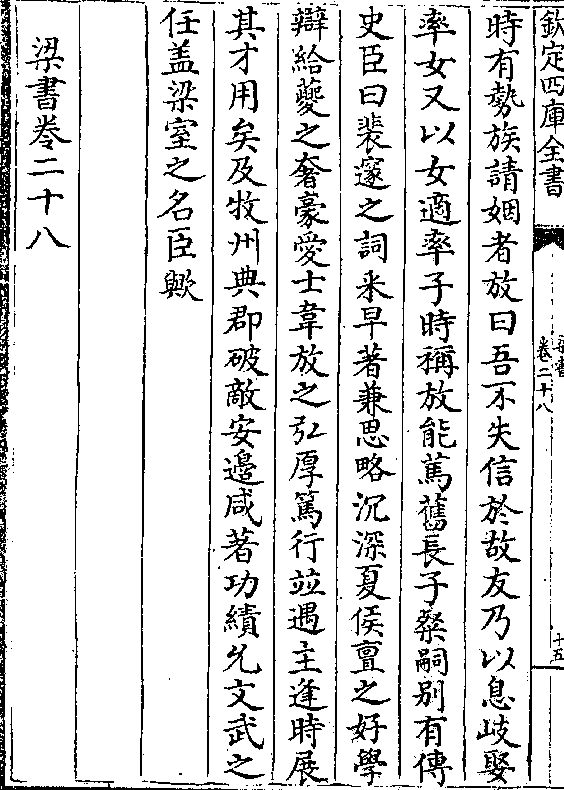 欽定四庫全書
梁書
卷二十八
十五
時有勢族請姻者放曰吾不失信於故友乃以息岐娶
率女又以女適率子時稱放能篤舊長子粲嗣别有傳
史臣曰裴邃之詞采早著兼思略沉深夏侯亶之好學
辯給夔之奢豪愛士韋放之弘厚篤行並遇主逢時展
其才用矣及牧州典郡破敵安邊咸著功績允文武之
任盖梁室之名臣歟
梁書卷二十八